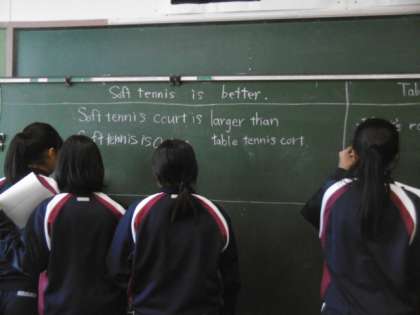 Soft tennis is better.
Soft tennis court is larger than
table tennis cort.
Soft tennis is
Tab